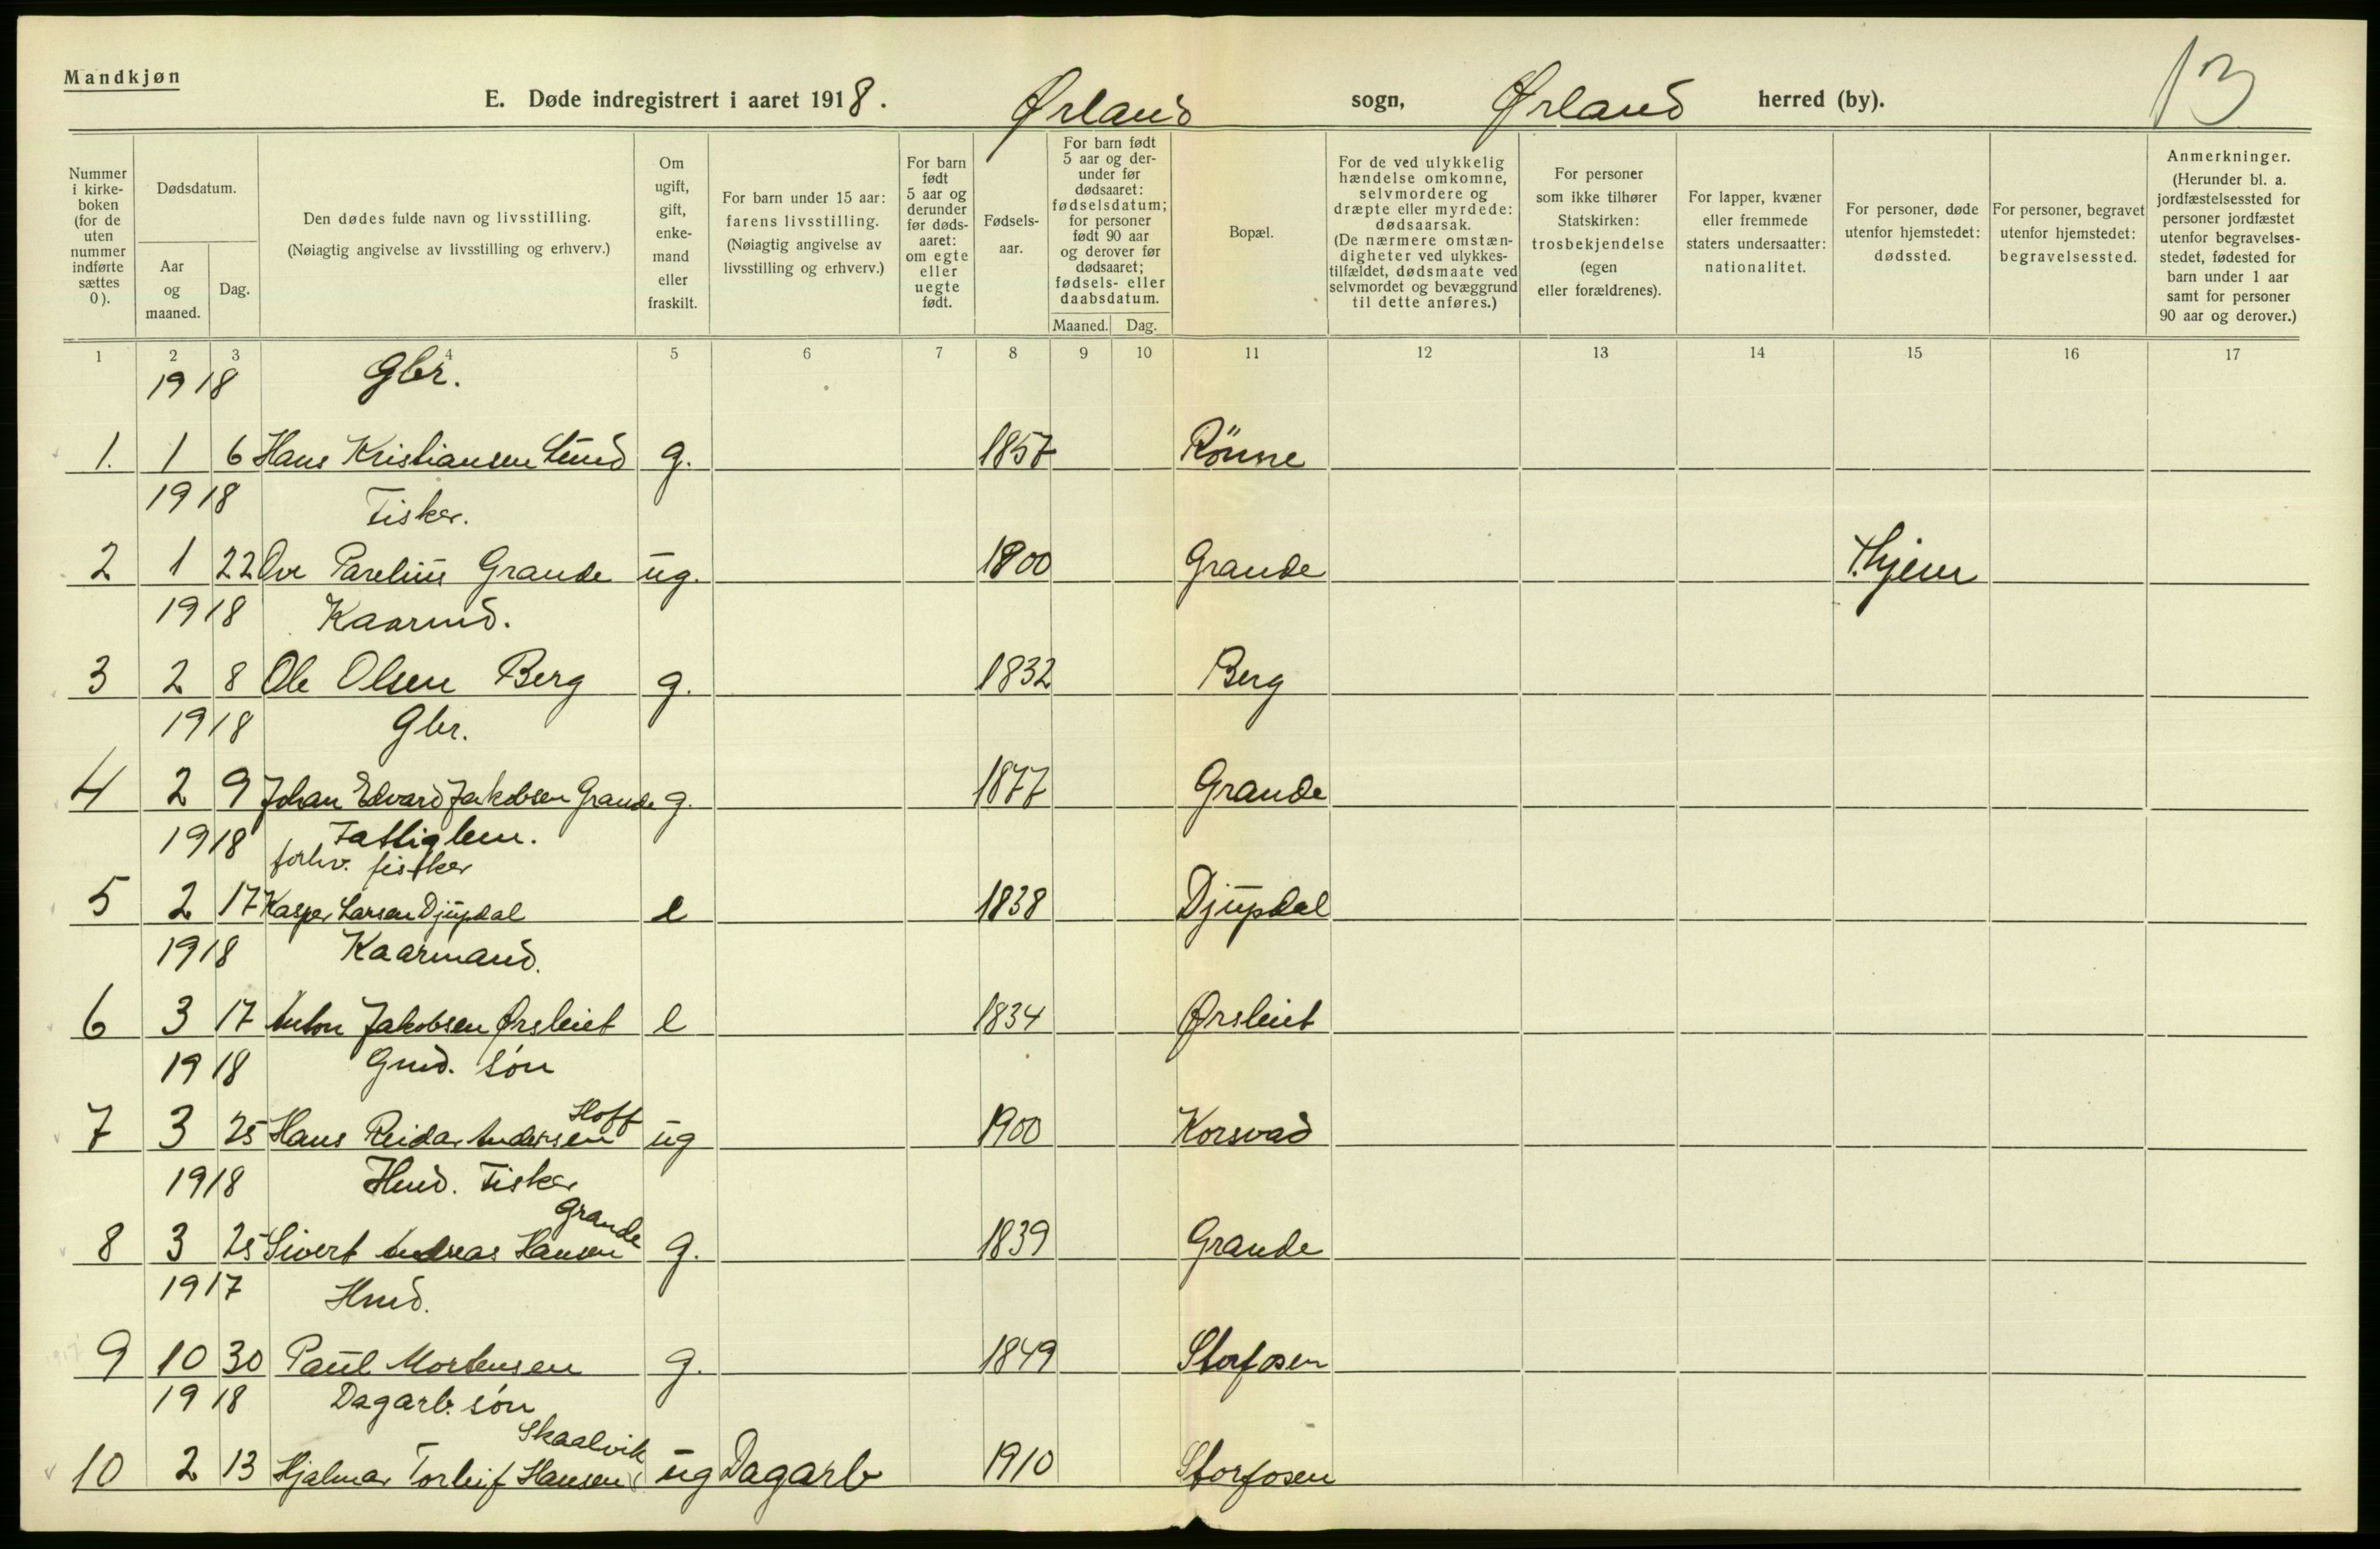 Mandkjøn
13
E. Døde indregistrert i aaret 1918. Ørland sogn, Ørland herred (by).
Nummer i kirke- boken (for de uten nummer indførte sættes 0).
Dødsdatum.
Aar og maaned.
Dag.
Den dødes fulde navn og livsstilling.
(Nøiagtig angivelse av livsstilling og erhverv.)
Om ugift, gift, enke- mand eller fraskilt.
For barn under 15 aar: farens livsstilling. (Nøiagtig angivelse av livsstilling og erhverv.)
For barn født 5 aar og derunder før døds- aaret: om egte eller uegte født.
Fødsels- aar.
For barn født 5 aar og der- under før dødsaaret: fødselsdatum; for personer født 90 aar og derover før dødsaaret; fødsels- eller daabsdatum.
Maaned. Dag.
Bopæl.
For de ved ulykkelig hændelse omkomne, selvmordere og dræpte eller myrdede: dødsaarsak. (De nærmere omstæn- digheter ved ulykkes- tilfældet, dødsmaate ved selvmordet og bevæggrund til dette anføres.)
For personer som ikke tilhører Statskirken: trosbekjendelse (egen eller forældrenes).
For lapper, kvæner eller fremmede staters undersaatter: nationalitet.
For personer, døde utenfor hjemstedet: dødssted.
For personer, begravet utenfor hjemstedet: begravelsessted.
Anmerkninger. (Herunder bl. a. jordfæstelsessted for personer jordfæstet utenfor begravelses- stedet, fødested for barn under 1 aar samt for personer 90 aar og derover.)
1 2 3 4 5 6 7 8 9 10 11 12 13 14 15 16 17
1918 Gbr.
1. 1 6 Hans Kristiansen Lund g. 1857 Rönne
1918 Fisker.
2 1 22 Ove Parelius Grande ug. 1900 Grande T.hjem
1918 Kaarmd.
3 2 8 Ole Olsen Berg g. 1832 Berg
1918 Gbr.
4 2 9 Johan Edvard Jakobsen Grande g. 1877 Grande
1918 Fattiglem.
forhv. fisker
5 2 17 Kasper Larsen Djupdal e 1838 Djupdal
1918 Kaarmand.
6 3 17 Anton Jakobsen Ørsleiet e 1834 Ørsleiet
1918 Gmd. søn
Hoff
7 3 25 Hans Reidar Andersen ug 1900 Korsvad
1918 Hmd. Fisker
Grande
8 3 25 Sivert Andreas Hansen g. 1839 Grande
1917 Hmd.
9 10 30 Paul Mortensen g. 1849 Storfosen
1918 Dagarb. søn
Skaalvik
10 2 13 Hjalmar Torleif Hansen ug Dagarb 1910 Storfosen